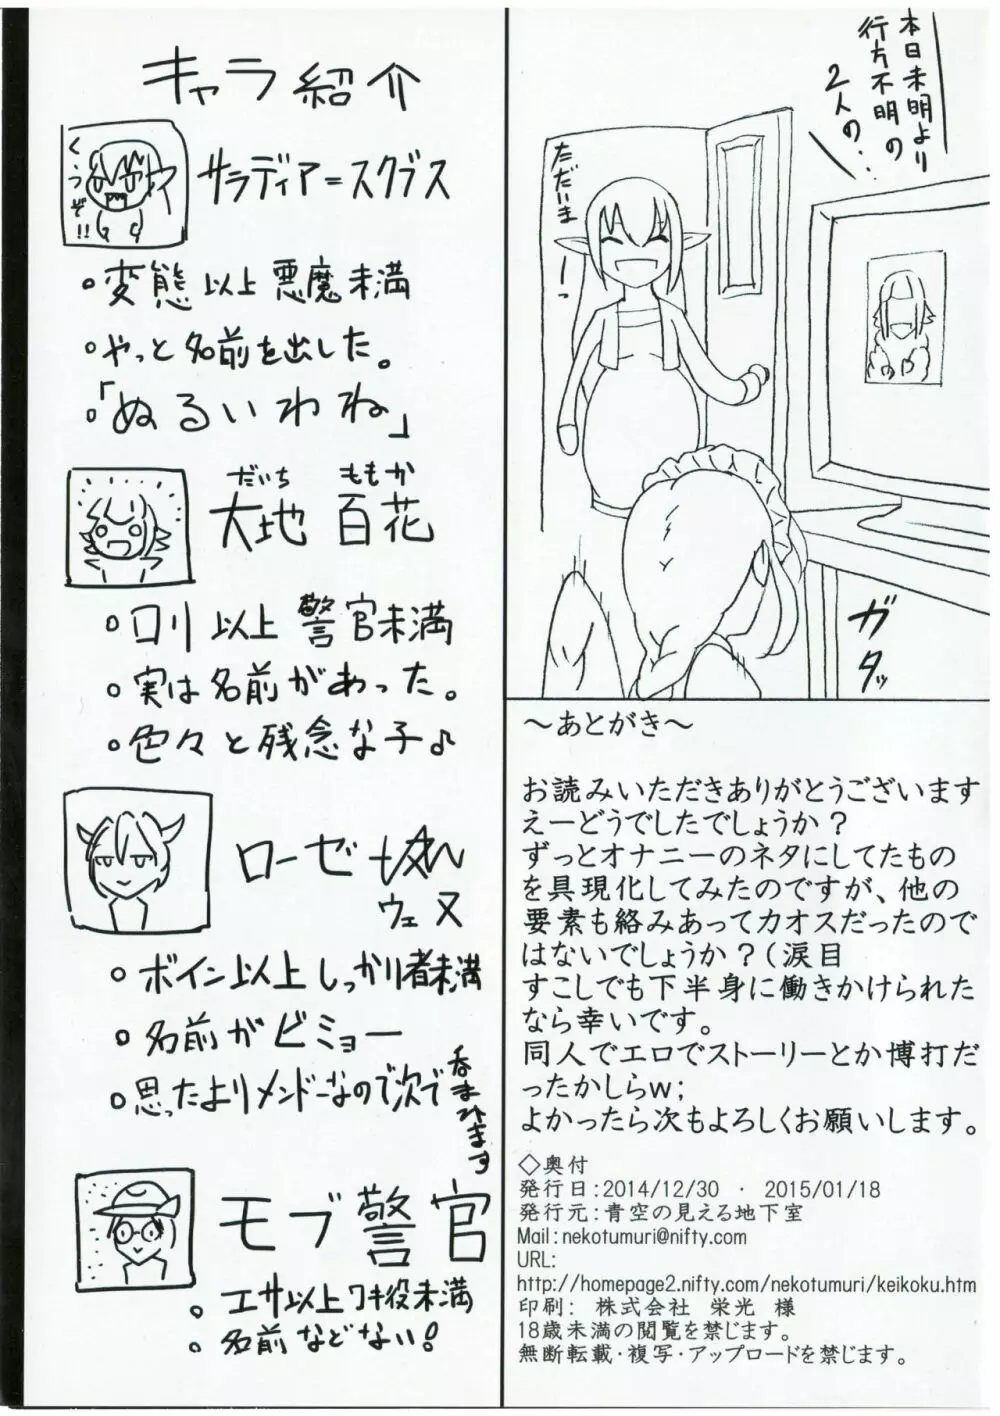 本日未明より
行方不明の
2人の‥
ただいまーっ
ガタッ
～あとがき～
お読みいただきありがとうございます
えーどうでしたでしょうか？
ずっとオナニーのネタにしてたもの
を具現化してみたのですが、他の
要素も絡みあってカオスだったので
はないでしょうか？（涙目
すこしでも下半身に働きかけられた
なら幸いです。
同人でエロでストーリーとか博打だ
ったかしらw；
よかったら次もよろしくお願いします。
◇奥付
発行日：2014/12/30 ・ 2015/01/18
発行元：青空の見える地下室
Mail：nekotumuri@nifty.com
URL:
http://homepage2.nifty.com/nekotumuri/keikoku.htm
印刷： 株式会社 栄光 様
18歳未満の閲覧を禁じます。
無断転載・複写・アップロードを禁じます。
キャラ紹介
くうぞ!!
サラディア＝スクブス
。変態以上悪魔未満
。やっと名前を出した。
。「ぬるいわね」
だいち ももか
大地 百花
。ロリ以上 警官未満
。実は名前があった。
。色々と残念な子♪
ローゼ
ウェヌ
。ボイン以上しっかり者未満
。名前がビミョー
。思ったよりメンドーなので次で呑まれます
モブ警官
。エサ以上ワキ役未満
。名前などない！